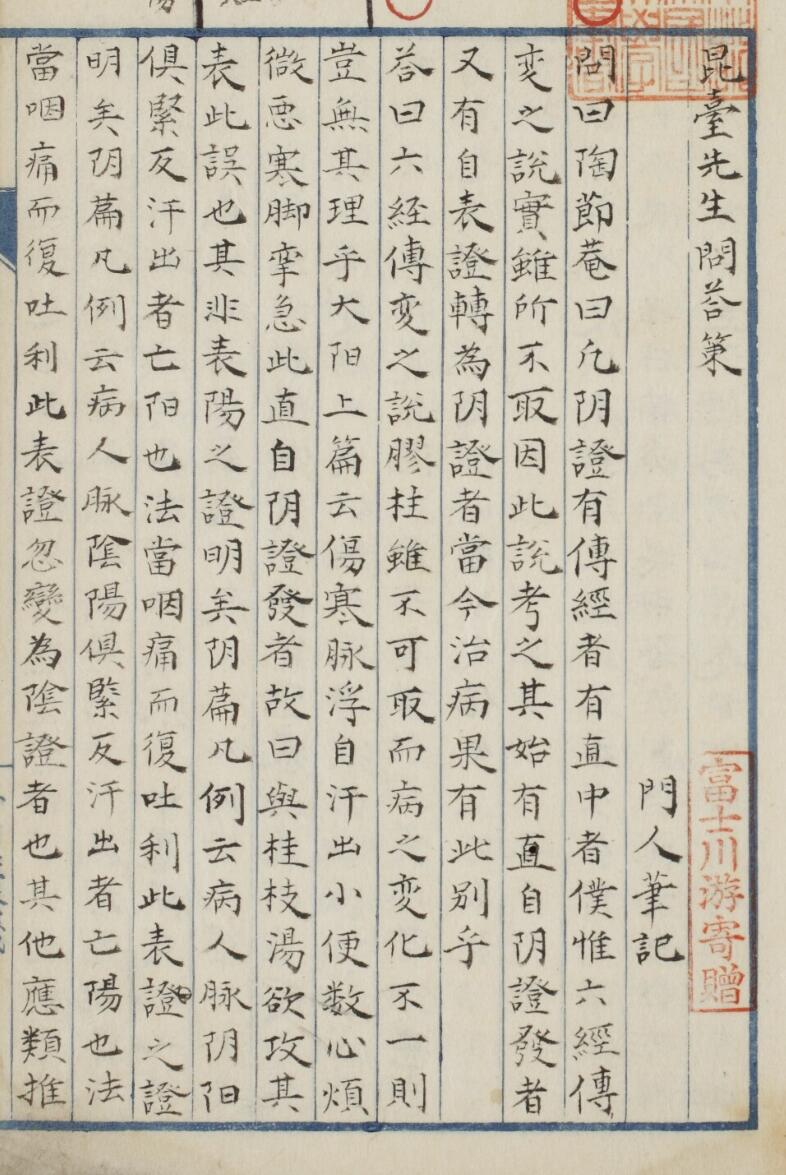 昆臺先生問荅策
門人筆記
問曰陶節菴曰凡阴證有傳經者有直中者僕惟六經傳
变之說實雖所不取因此説考之其始有直自阴證發者
又有自表證轉為阴證者當今治病果有此別乎
荅曰六経傳变之説膠柱雖不可取而病之変化不一則
豈無其理乎大阳上篇云傷寒脉浮自汗出小便数心煩
微悪寒脚挛急此直自阴證發者故曰與桂枝湯欲攻其
表此誤也其非表陽之證明矣阴篇凡例云病人脉阴阳
俱緊反汗出者亡阳也法當咽痛而復吐利此表證之證
明矣阴篇凡例云病人脉陰陽俱緊反汗出者亡陽也法
當咽痛而復吐利此表證忽變為陰證者也其他應類推
富士川游寄贈